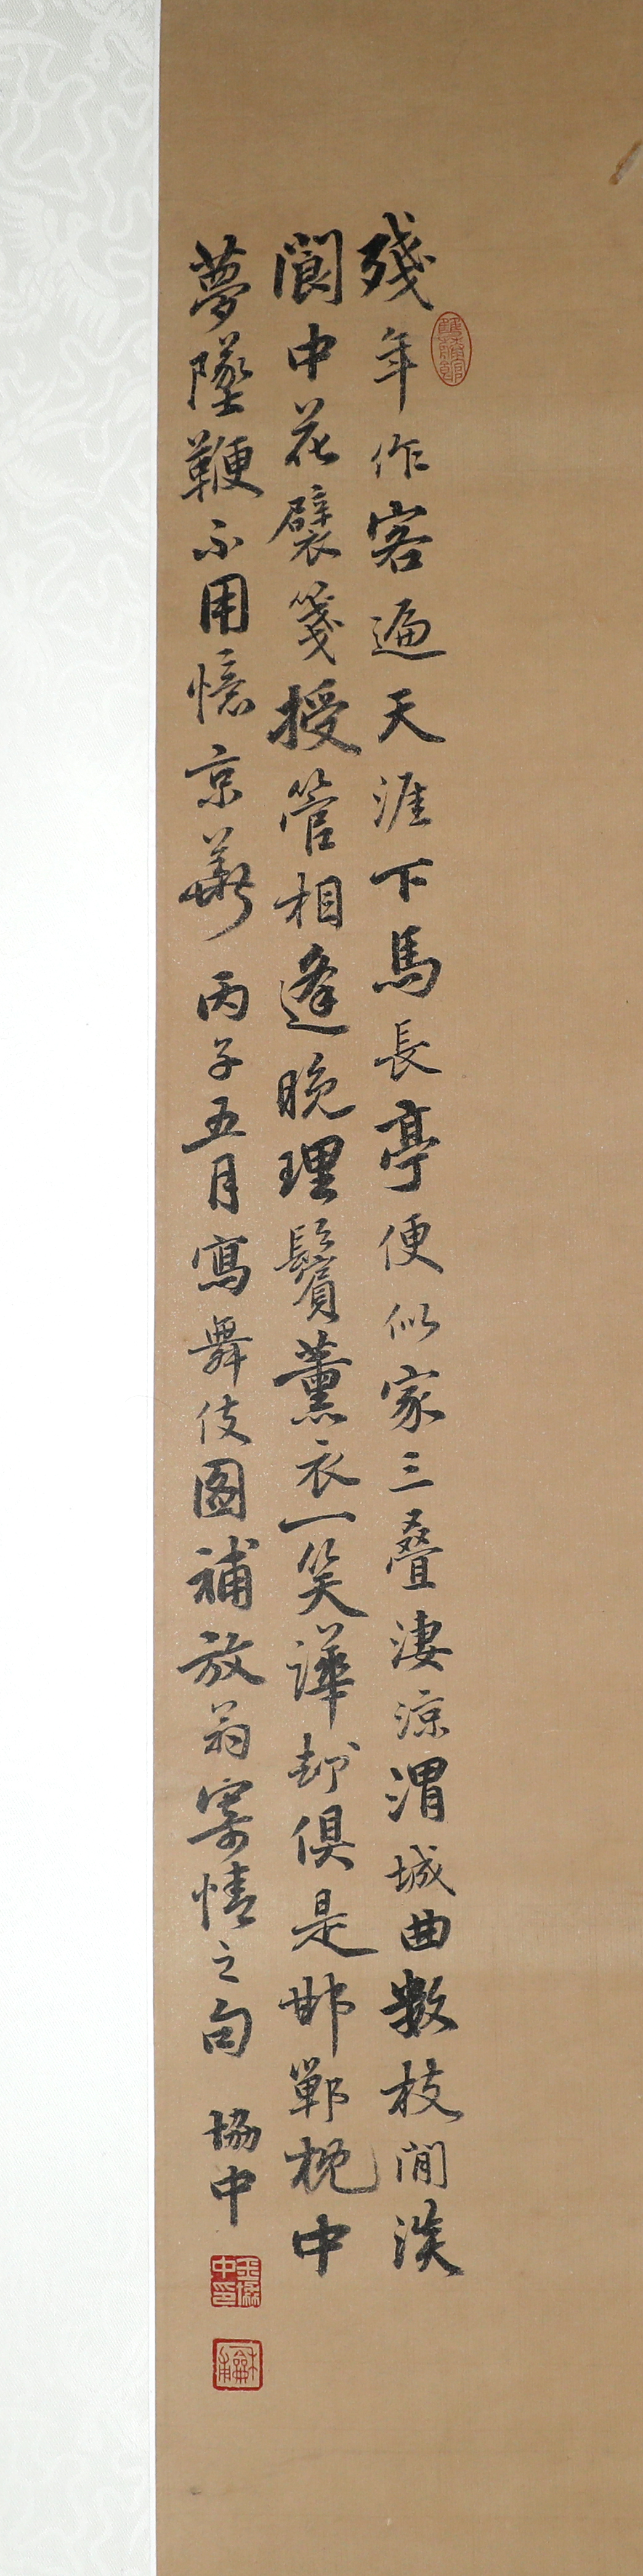 殘年作客遍天涯下馬長亭便似家三叠淒涼渭城曲數枝閒淡
閬中花襞箋授管相逢晚理鬢薰衣一笑譁却俱是邯鄲枕中
夢墜鞭不用憶京華 丙子五月寫舞伎圖補放翁寄情之句 協中